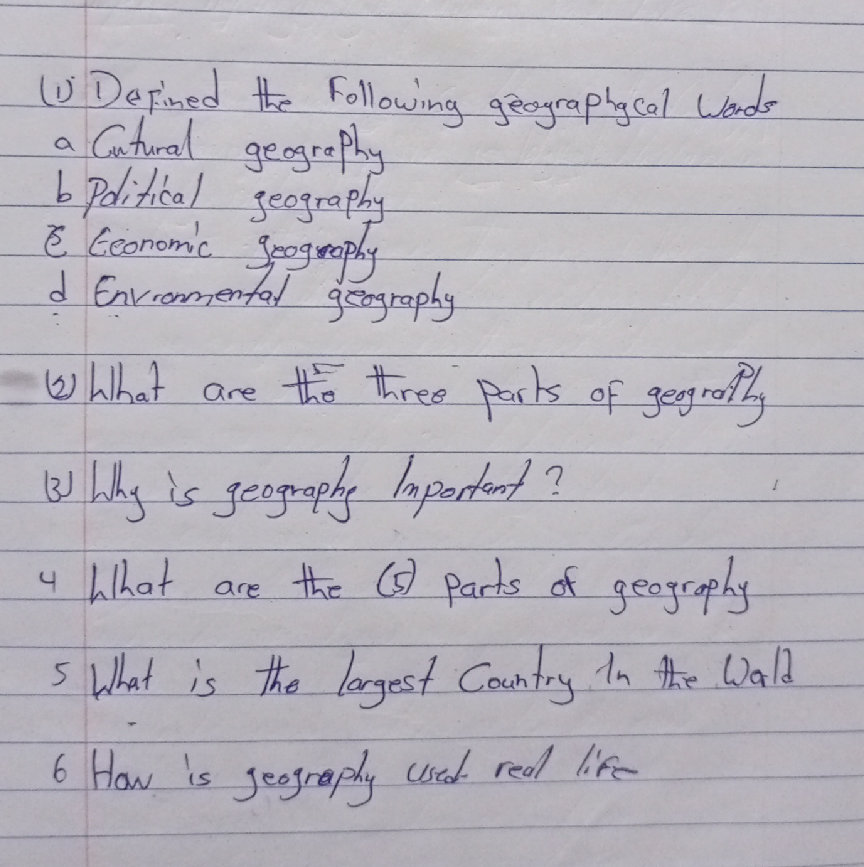 (1) Defined the Following geographycal Words
a Cutural geography
b Political geography
c Economic geography
d Envronmental geography
(2) What are the three parts of geography
(3) Why is geography Important?
4 What are the (5) parts of geography
5 What is the largest Country In the World
6 How is geography used real life